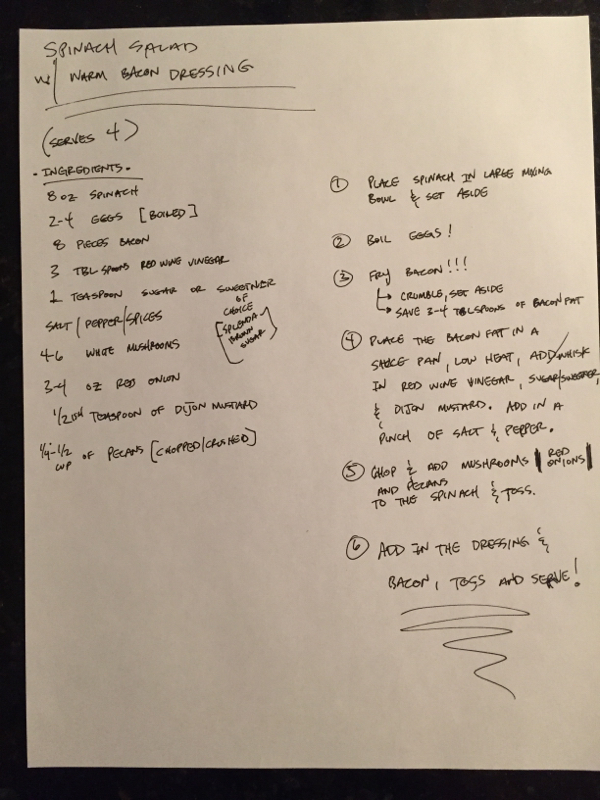 SPINACH SALAD
w/ WARM BACON DRESSING
(SERVES 4)
- INGREDIENTS -
8 OZ SPINACH
2-4 EGGS [BOILED]
8 PIECES BACON
3 TBL SPOONS RED WINE VINEGAR
1 TEASPOON SUGAR OR SWEETNER
OF
CHOICE
[SPLENDA
BROWN
SUGAR]
SALT/PEPPER/SPICES
4-6 WHITE MUSHROOMS
3-4 OZ RED ONION
1/2 TEASPOON OF DIJON MUSTARD
1/4-1/2 CUP OF PECANS [CHOPPED/CRUSHED]
① PLACE SPINACH IN LARGE MIXING
BOWL & SET ASIDE
② BOIL EGGS!
③ FRY BACON!!!
↳ CRUMBLE, SET ASIDE
↳ SAVE 3-4 TBLSPOONS OF BACON FAT
④ PLACE THE BACON FAT IN A
SAUCE PAN, LOW HEAT, ADD/WHISK
IN RED WINE VINEGAR, SUGAR/SWEETNER,
& DIJON MUSTARD. ADD IN A
PINCH OF SALT & PEPPER.
⑤ CHOP & ADD MUSHROOMS | RED ONIONS |
AND PECANS
TO THE SPINACH & TOSS.
⑥ ADD IN THE DRESSING &
BACON, TOSS AND SERVE!